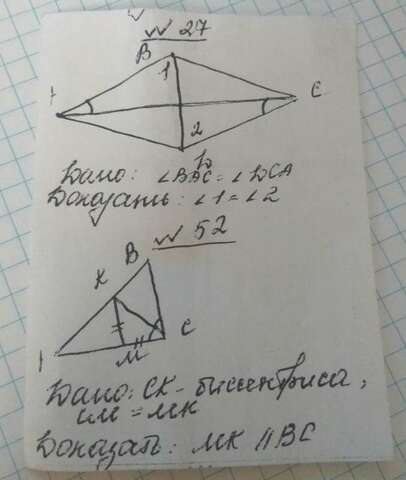 № 27
B
1
C
2
D
Дано: ∠BAC = ∠DCA
Доказать: ∠1 = ∠2
№ 52
B
K
C
M
Дано: CK - биссектриса,
CM = MK
Доказать: MK || BC